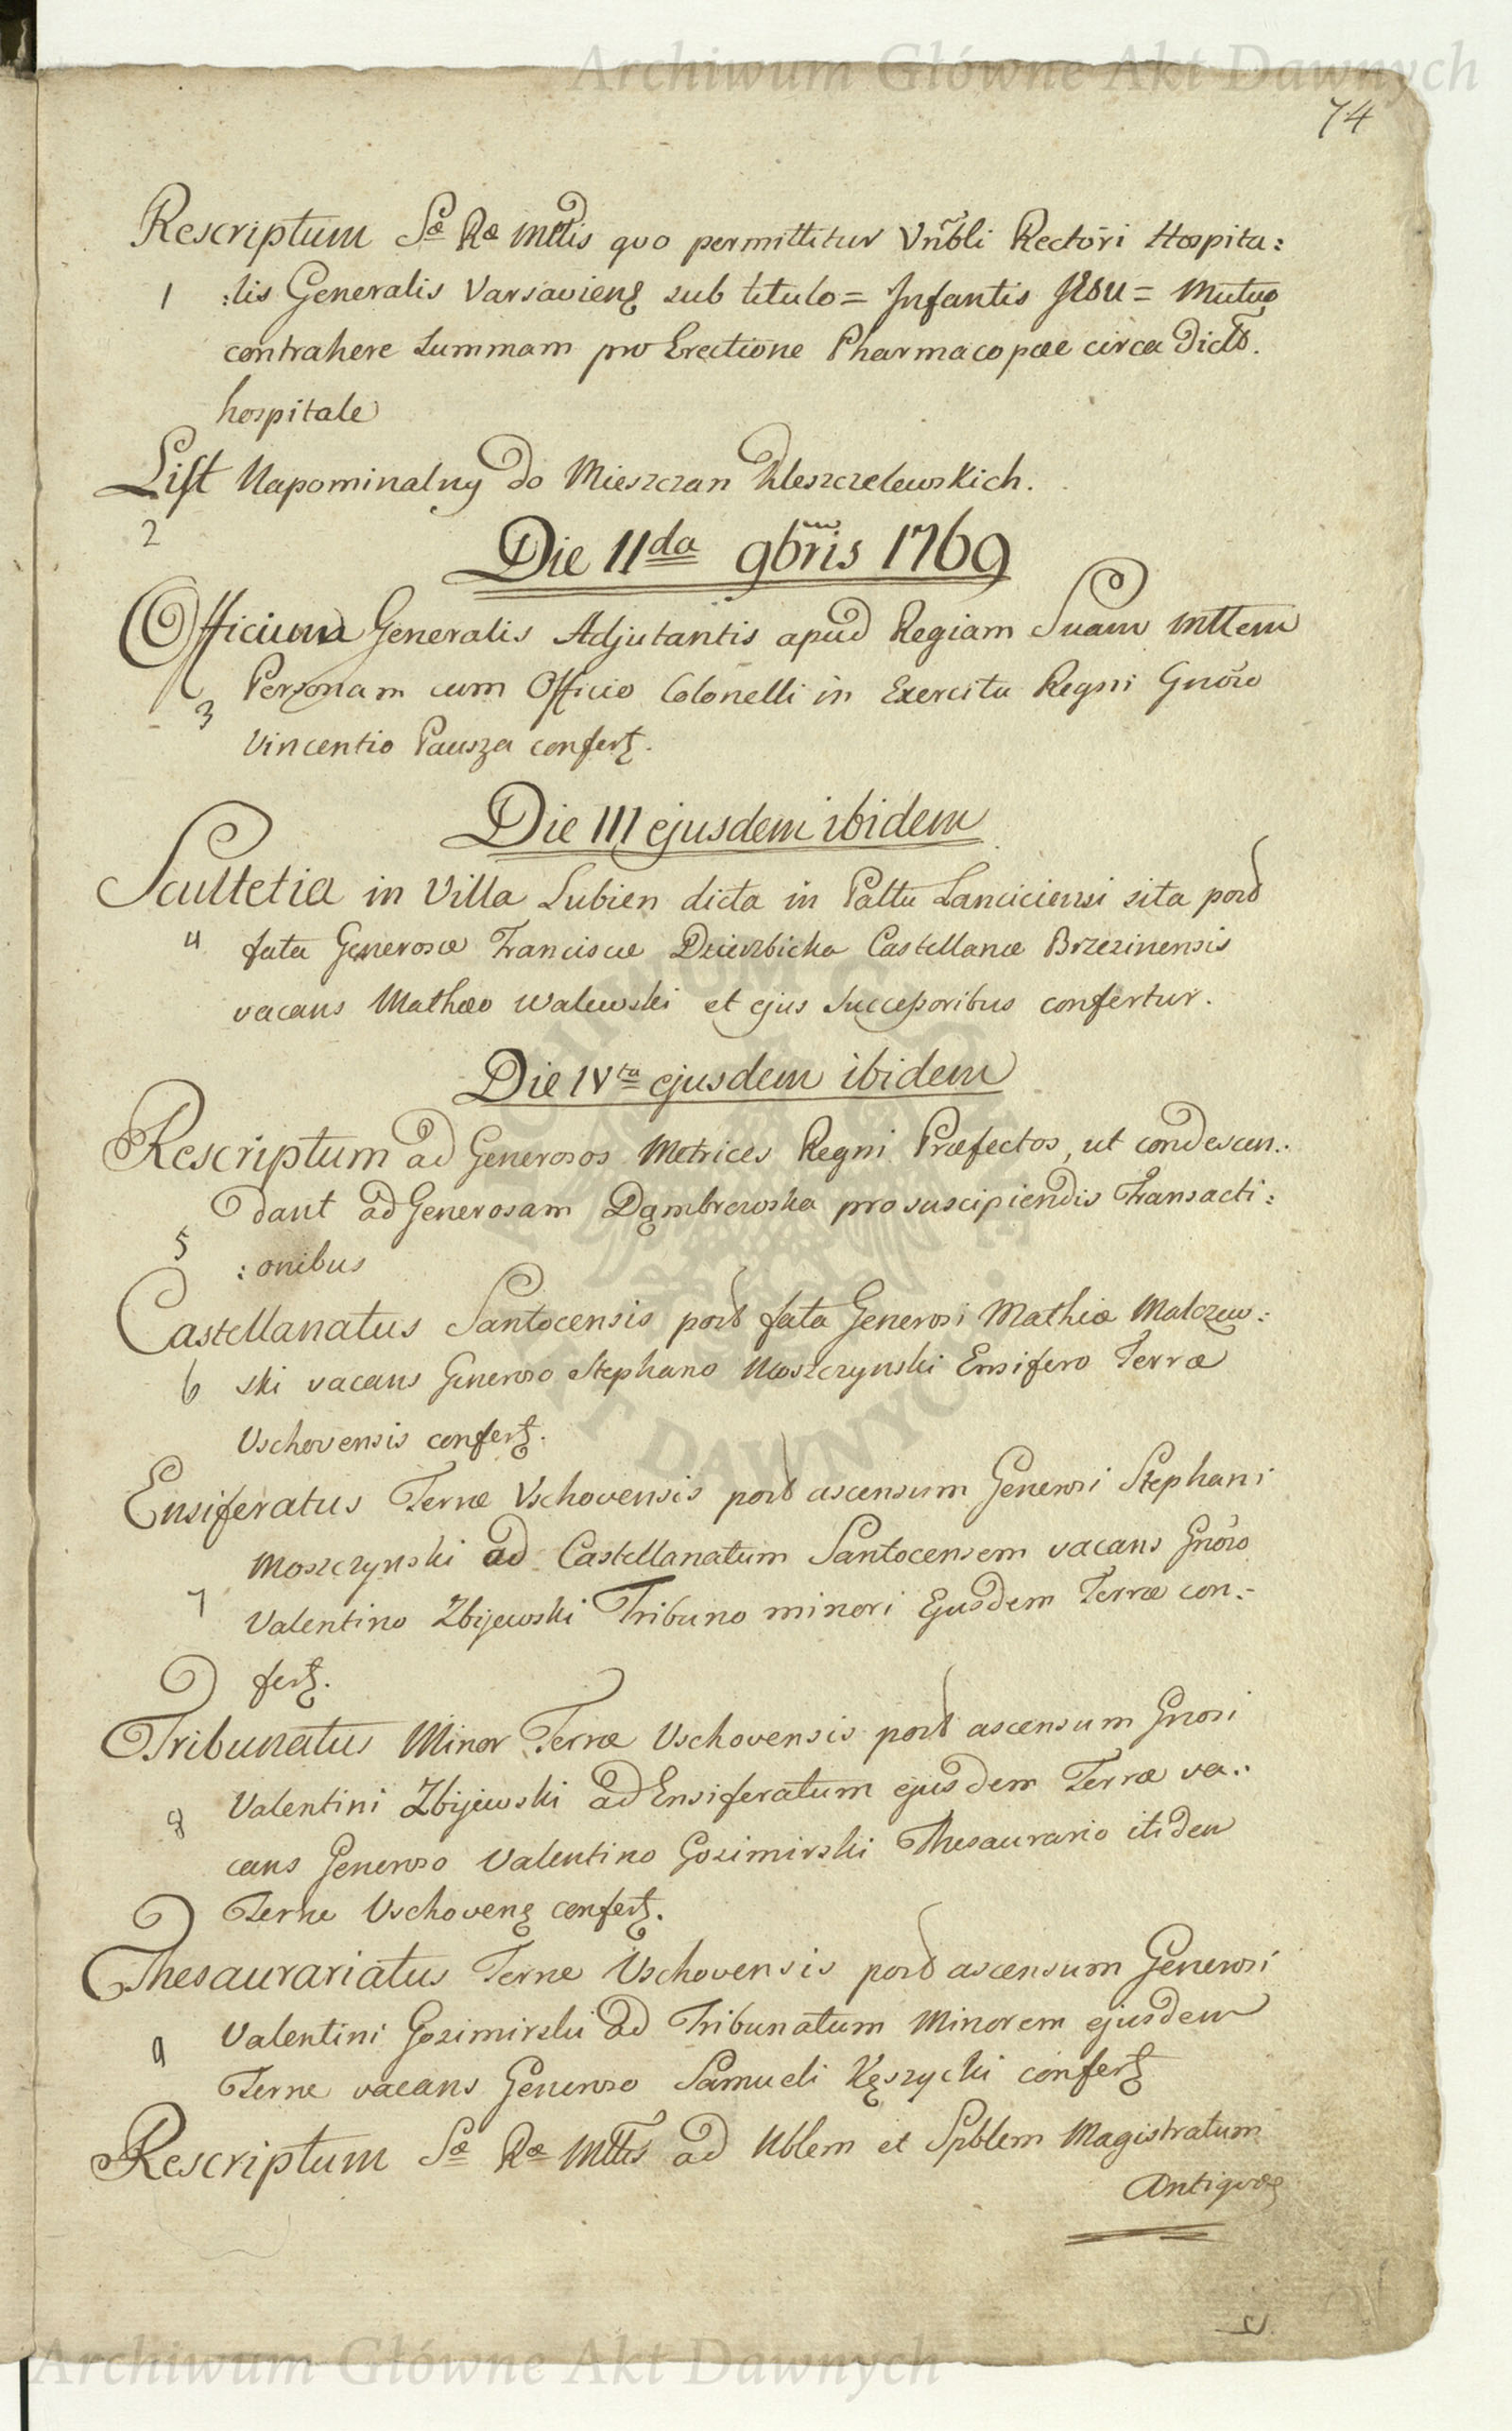 Archiwum Główne Akt Dawnych
74
Rescriptum Sæ Ræ Mttis quo permittitur Vn̄bli Rectōri Hospita:
1 :lis Generalis Varsavienȝ sub titulo = Infantis Jesu = Mutuo
contrahere Summam pro Erectione Pharmacopæ circa Dict̄.
hospitale
List Napominalny do Mieszczan Kleszczelewskich.
2
Die IIda 9bris 1769
Officium Generalis Adjutantis apud Regiam Suam Mttem
Personam cum Officio Colonelli in Exercitu Regni Gnōso
3
Vincentio Pausza confertȝ.
Die III ejusdem ibidem
Scultetia in Villa Lubien dicta in Palttu Lanciciensi sita post
4 fata Generosæ Franciscæ Dzierzbicka Castellanæ Brzezinensis
vacans Mathæo Walewski et ejus Successoribus confertur.
Die IVta ejusdem ibidem
Rescriptum ad Generosos Metrices Regni Præfectos, ut condescen:
dant ad Generosam Dąmbrowska pro suscipiendis Transacti:
5 :onibus
Castellanatus Santocensis post fata Generosi Mathiæ Malczew:
6 ski vacans Generoso Stephano Moszczynski Ensifero Terræ
Uschovensis confertȝ.
Ensiferatus Terræ Vschovensis post ascensum Generosi Stephani
Moszczynski ad Castellanatum Santocensem vacans Gnōso
7 Valentino Zbijewski Tribuno minori Ejusdem Terræ con:
fertȝ.
Tribunatus Minor Terræ Uschovensis post ascensum Gnosi
8 Valentini Zbijewski ad Ensiferatum ejusdem Terræ va:
cans Generoso Valentino Gozimirski Thesaurario itidem
Terræ Uschovenȝ confertȝ.
Thesaurariatus Terræ Uschovensis post ascensum Generosi
9 Valentini Gozimirski ad Tribunatum Minorem ejusdem
Terræ vacans Generoso Samueli Kęszycki confertȝ
Rescriptum Sæ Ræ Mttis ad Nblem et Spblem Magistratum
Antiquæ
Archiwum Główne Akt Dawnych